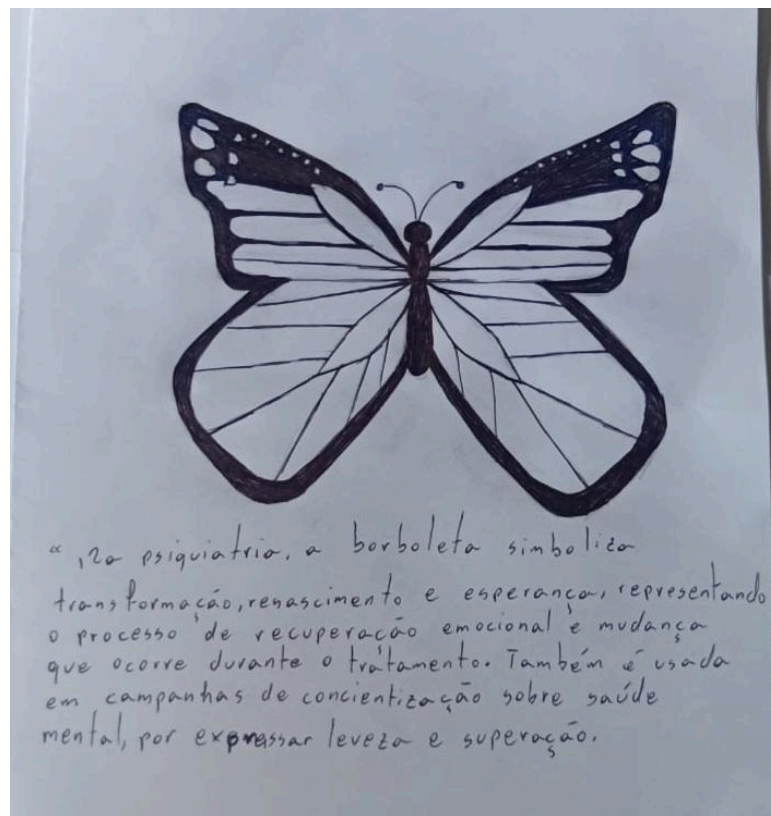 " Na psiquiatria, a borboleta simboliza
transformação, renascimento e esperança, representando
o processo de recuperação emocional e mudança
que ocorre durante o tratamento. Também é usada
em campanhas de concientização sobre saúde
mental, por expressar leveza e superação.